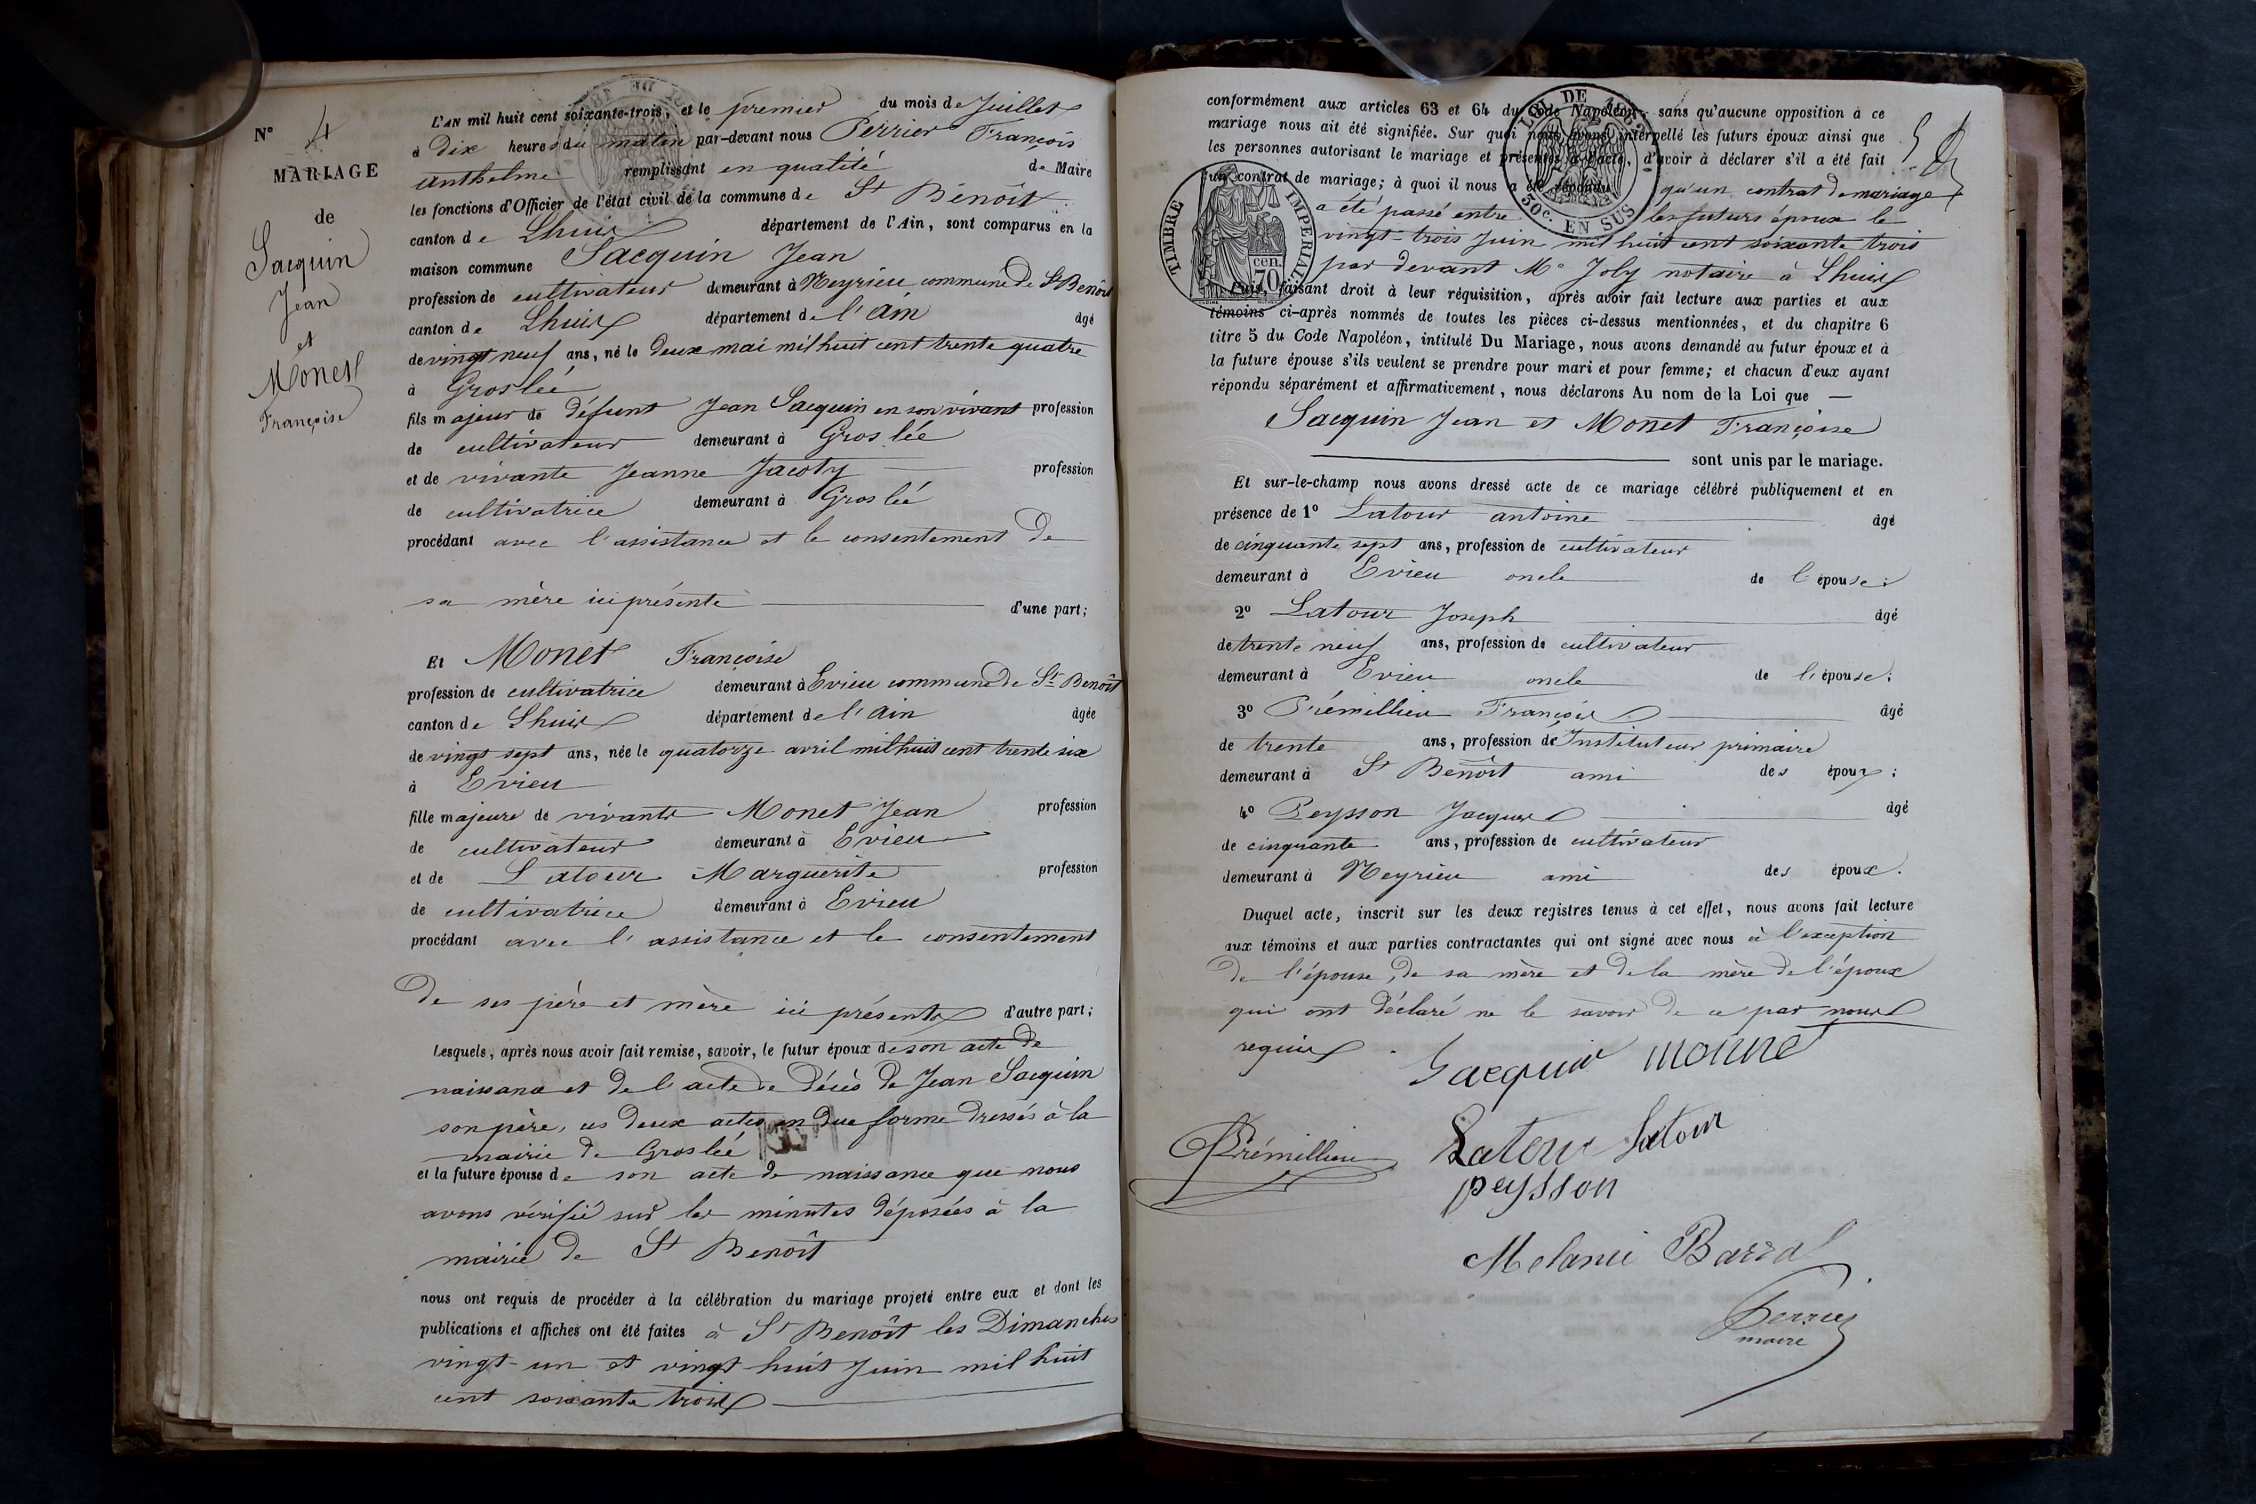 N° 4
MARIAGE
de
Sacquin
Jean
et
Monet
Françoise
L'AN mil huit cent soixante-trois, et le premier du mois de Juillet
à dix heures du matin par-devant nous Perrier François
Anthelme remplissant en qualité de Maire
les fonctions d'Officier de l'état civil de la commune de St Benoît
canton de Lhuis département de l'Ain, sont comparus en la
maison commune Sacquin Jean
profession de cultivateur demeurant à Neyrieu commune de St Benoît
canton de Lhuis département de l'Ain âgé
de vingt neuf ans, né le deux mai mil huit cent trente quatre
à Groslée
fils majeur de défunt Jean Sacquin en son vivant profession
de cultivateur demeurant à Groslée
et de vivante Jeanne Jacoty profession
de cultivatrice demeurant à Groslée
procédant avec l'assistance et le consentement de
sa mère ici présente d'une part;
Et Monet Françoise
profession de cultivatrice demeurant à Evieu commune de St Benoît
canton de Lhuis département de l'Ain âgée
de vingt sept ans, née le quatorze avril mil huit cent trente six
à Evieu
fille majeure de vivants Monet Jean profession
de cultivateur demeurant à Evieu
et de Latour Marguerite profession
de cultivatrice demeurant à Evieu
procédant avec l'assistance et le consentement
de ses père et mère ici présents d'autre part;
Lesquels, après nous avoir fait remise, savoir, le futur époux de son acte de
naissance et de l'acte de décès de Jean Sacquin
son père, ces deux actes en due forme dressés à la
mairie de Groslée
et la future épouse de son acte de naissance que nous
avons vérifié sur les minutes déposées à la
mairie de St Benoît
nous ont requis de procéder à la célébration du mariage projeté entre eux et dont les
publications et affiches ont été faites à St Benoît les Dimanches
vingt-un et vingt-huit Juin mil huit
cent soixante trois
conformément aux articles 63 et 64 du Code Napoléon, sans qu'aucune opposition à ce
mariage nous ait été signifiée. Sur quoi nous avons interpellé les futurs époux ainsi que
les personnes autorisant le mariage et présentes à l'acte, d'avoir à déclarer s'il a été fait
un contrat de mariage; à quoi il nous a été répondu qu'un contrat de mariage
a été passé entre les futurs époux le
vingt-trois Juin mil huit cent soixante trois
par devant Me Joly notaire à Lhuis
Puis, faisant droit à leur réquisition, après avoir fait lecture aux parties et aux
témoins ci-après nommés de toutes les pièces ci-dessus mentionnées, et du chapitre 6
titre 5 du Code Napoléon, intitulé Du Mariage, nous avons demandé au futur époux et à
la future épouse s'ils veulent se prendre pour mari et pour femme; et chacun d'eux ayant
répondu séparément et affirmativement, nous déclarons Au nom de la Loi que —
Sacquin Jean et Monet Françoise
sont unis par le mariage.
Et sur-le-champ nous avons dressé acte de ce mariage célébré publiquement et en
présence de 1° Latour antoine âgé
de cinquante sept ans, profession de cultivateur
demeurant à Evieu oncle de l'épouse;
2° Latour Joseph âgé
de trente neuf ans, profession de cultivateur
demeurant à Evieu oncle de l'épouse;
3° Prémillieu François âgé
de trente ans, profession de Instituteur primaire
demeurant à St Benoît ami des époux;
4° Peysson Jacques âgé
de cinquante ans, profession de cultivateur
demeurant à Neyrieu ami des époux.
Duquel acte, inscrit sur les deux registres tenus à cet effet, nous avons fait lecture
aux témoins et aux parties contractantes qui ont signé avec nous à l'exception
de l'épouse, de sa mère et de la mère de l'époux
qui ont déclaré ne le savoir de ce par nous
requis.
Sacquin monnet
Prémillieu Latour Latour
peysson
Melanie Barral
Perrier
maire
TIMBRE IMPERIAL
70 cen.
LOI DE
50c. EN SUS